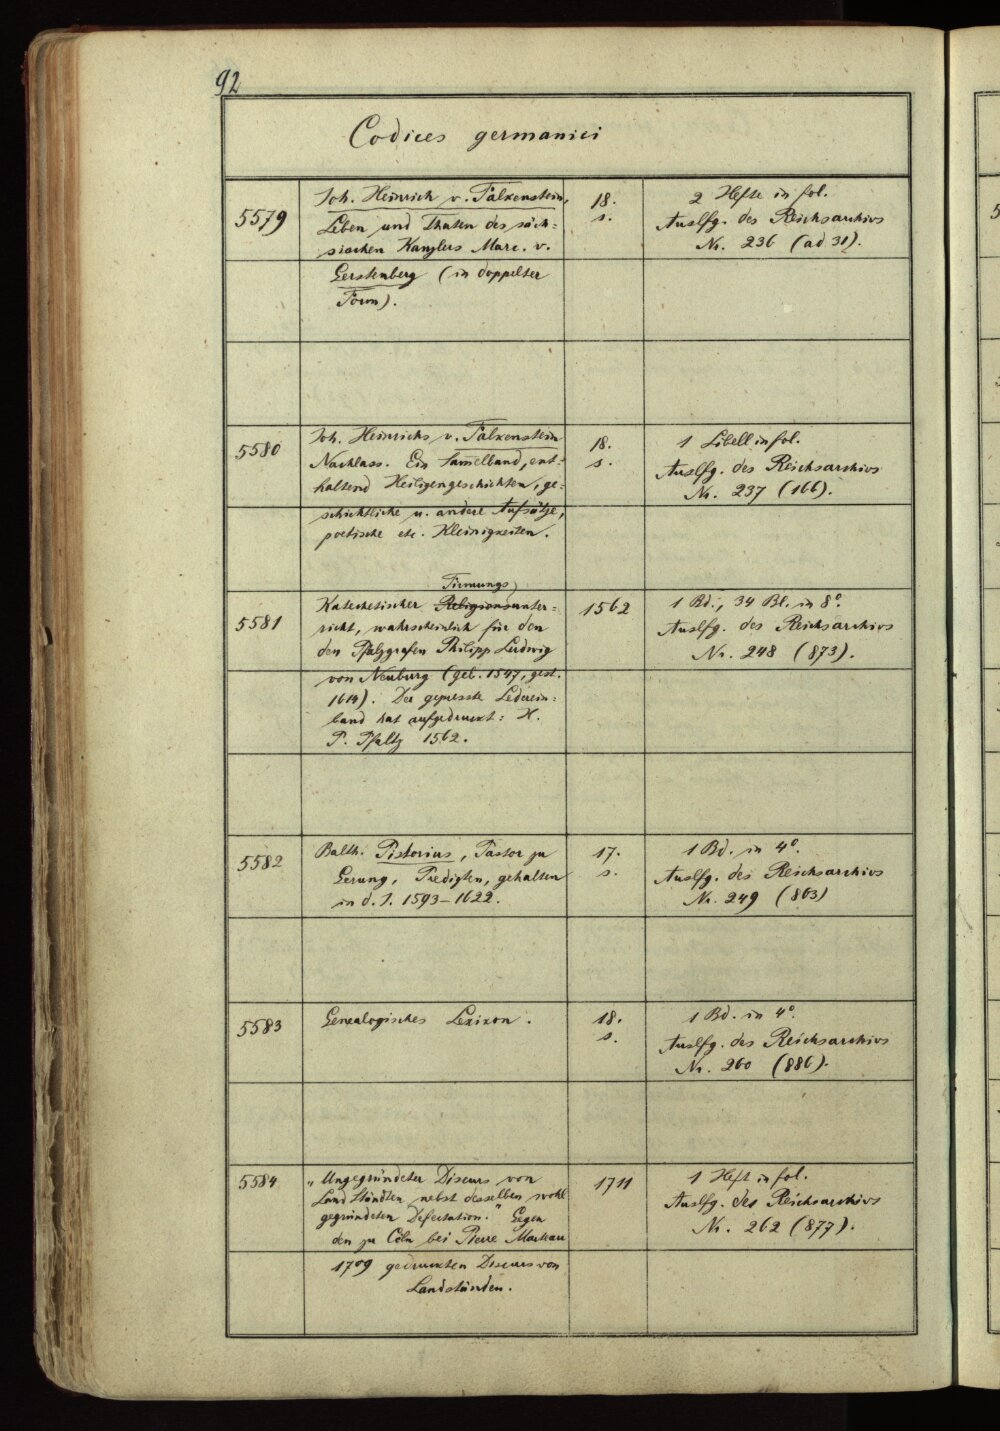 92
Codices germanici
5579
Joh. Heinrich v. Falkenstein,
Leben und Thaten des säch=
sischen Kanzlers Marc. v.
Gerstenberg (in doppelter
Form).
18.
s.
2 Hefte in fol.
Auslfg. des Reichsarchivs
Nr. 236 (ad 31).
5580
Joh. Heinrichs v. Falkenstein
Nachlass. Ein Sammelband, ent=
haltend Heiligengeschichten, ge=
schichtliche u. andere Aufsätze,
poetische etc. Kleinigkeiten.
18.
s.
1 Libell in fol.
Auslfg. des Reichsarchivs
Nr. 237 (166).
5581
Firmungs
Katechetischer Religionsunter=
richt, wahrscheinlich für den
den Pfalzgrafen Philipp Ludwig
von Neuburg (geb. 1547, gest.
1614). Der gepresste Lederein=
band hat aufgedruckt: H.
P. Pfaltz 1562.
1562
1 Bd., 34 Bl. in 8°.
Auslfg. des Reichsarchivs
Nr. 248 (873).
5582
Balth. Pistorius, Pastor zu
Gerung, Predigten, gehalten
in d. J. 1593–1622.
17.
s.
1 Bd. in 4°.
Auslfg. des Reichsarchivs
Nr. 249 (863)
5583
Genealogisches Lexikon.
18.
s.
1 Bd. in 4°.
Auslfg. des Reichsarchivs
Nr. 260 (886).
5584
„Ungegründeter Discurs von
Land Ständten nebst desselben wohl
gegründeten Defectation." Gegen
den zu Cöln bei Pierre Marteau
1709 gedruckten Discurs von
Landständen.
1711
1 Heft in fol.
Auslfg. des Reichsarchivs
Nr. 262 (877).